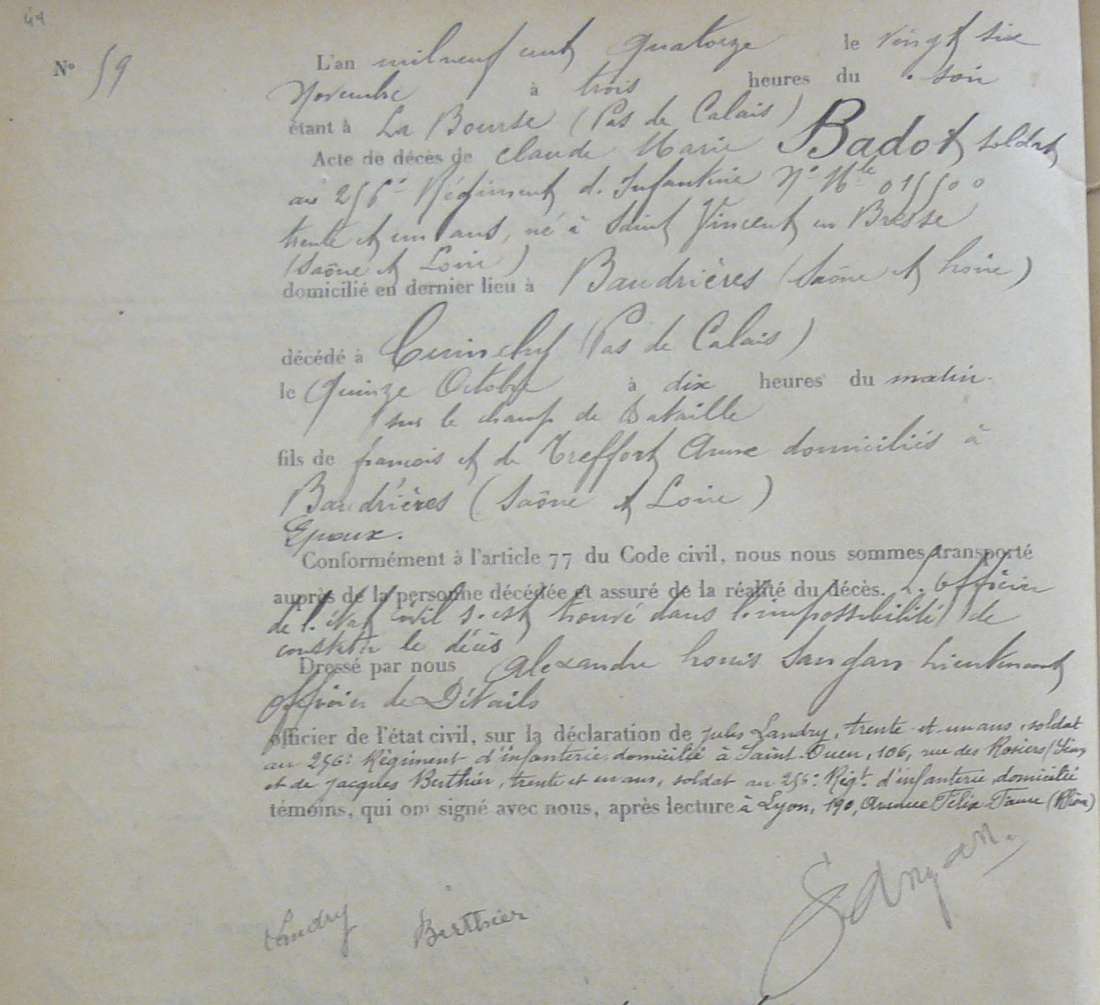 49
N° 59
L'an mil neuf cent quatorze le vingt six
Novembre à trois heures du soir
étant à La Bourse (Pas de Calais)
Acte de décès de Claude Marie Badot soldat
au 256e Régiment d'Infanterie N° Mle 015500
trente et un ans, né à Saint Vincent en Bresse
(Saône et Loire)
domicilié en dernier lieu à Baudrières (Saône et Loire)
décédé à Cuinchy (Pas de Calais)
le quinze Octobre à dix heures du matin
sur le champ de Bataille
fils de françois et de Treffort Anne domiciliés à
Baudrières (Saône et Loire)
Epoux.
Conformément à l'article 77 du Code civil, nous nous sommes transporté
auprès de la personne décédée et assuré de la réalité du décès. L'officier
de l'état civil s'est trouvé dans l'impossibilité de
constater le décès
Dressé par nous Alexandre Louis Sangan Lieutenant
officier de Détails
officier de l'état civil, sur la déclaration de Jules Landry, trente et un ans, soldat
au 256e Régiment d'infanterie domicilié à Saint-Ouen, 106, rue des Rosiers
et de Jacques Berthier, trente et un ans, soldat au 256e Régt d'infanterie domicilié
témoins, qui ont signé avec nous, après lecture à Lyon, 190, Avenue Félix Faure (Rhône)
Sangan.
Landry Berthier